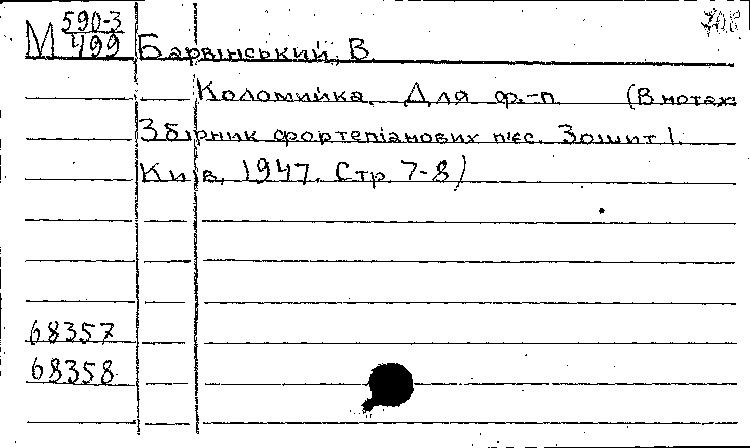 М 590-3/499 Барвінський, В. 708
Коломийка. Для ф.-п. (В нотах:
Збірник фортепіанових п'єс. Зошит І.
Київ, 1947. Стр. 7-8)
68357
68358